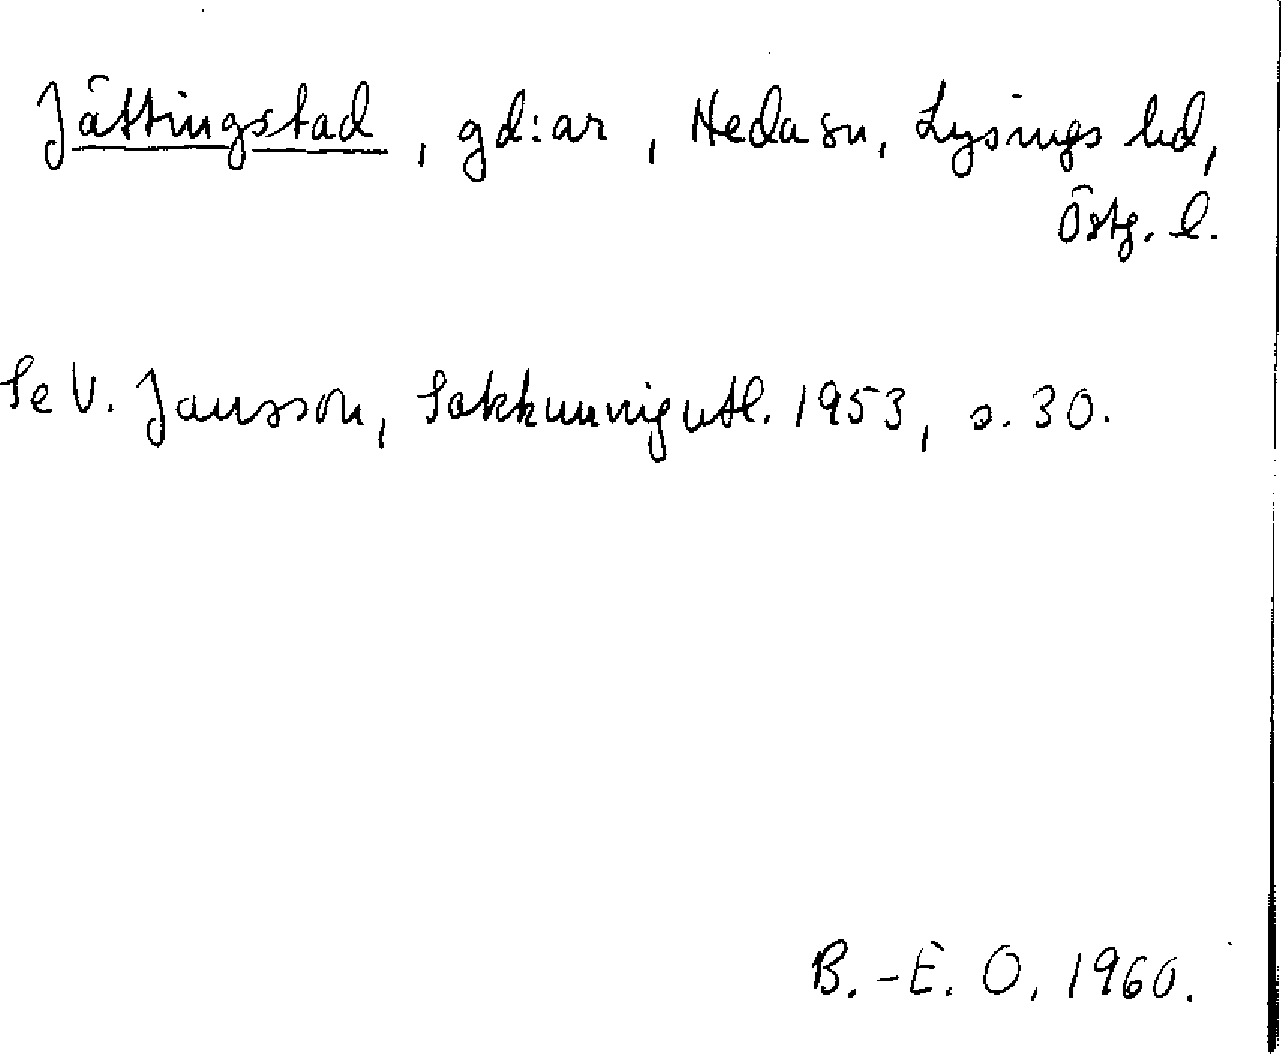 Jättingstad, gd:ar, Heda sn, Lysings hd,
Östg. l.
Se V. Jansson, Sakkunnigutl. 1953, s. 30.
B.-E. O, 1960.